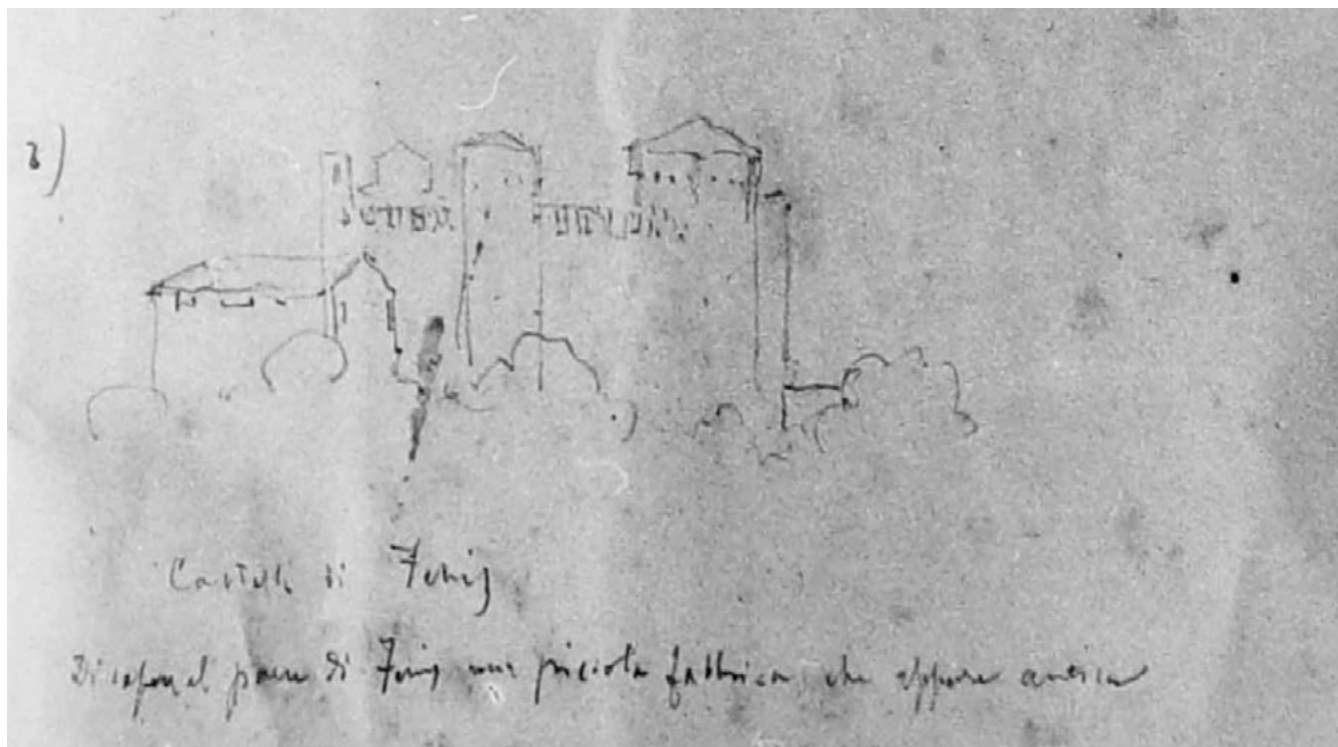 2)
Castello di Fenis
Di sopra al paese di Fenis una piccola fabbrica, che appare antica